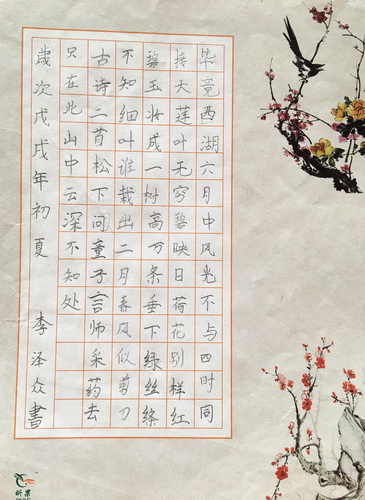 毕竟西湖六月中风光不与四时同
接天莲叶无穷碧映日荷花别样红
碧玉妆成一树高万条垂下绿丝绦
不知细叶谁裁出二月春风似剪刀
古诗二首松下问童子言师采药去
只在此山中云深不知处
歳次戊戌年初夏 李泽众書